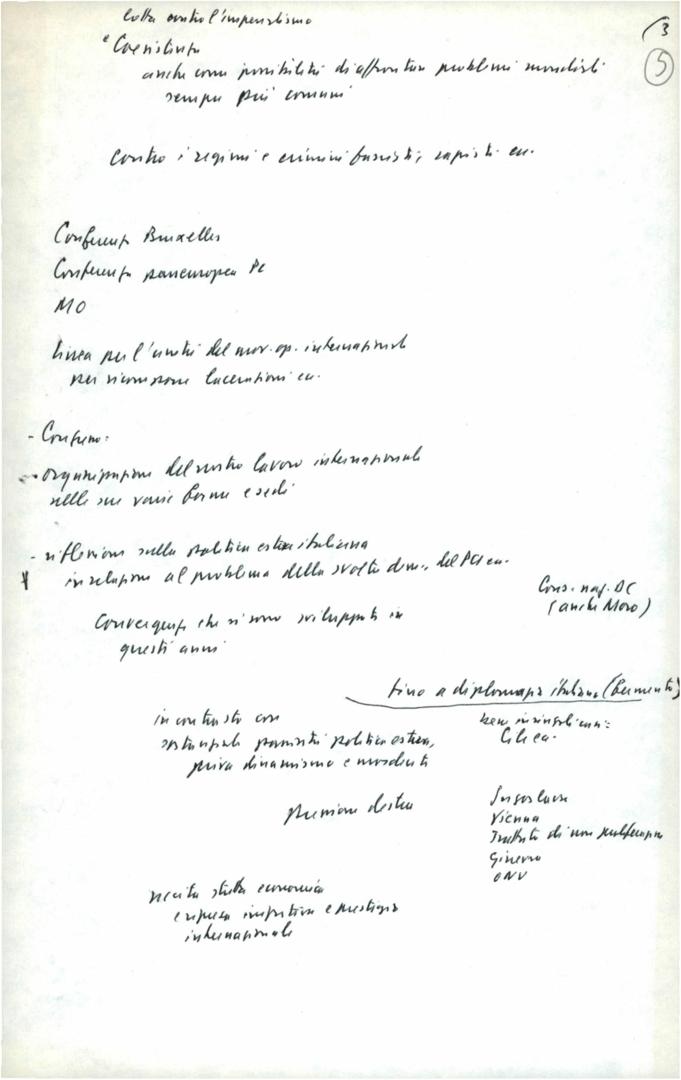 3
5
lotta contro l'imperialismo
e Coesistenza
anche come possibilità di affrontare problemi mondiali
sempre più comuni
Contro i regimi e crimini fascisti, razzisti ecc.
Conferenza Bruxelles
Conferenza paneuropea PC
MO
Linea per l'unità del mov. op. internazionale
per ricomporre lacerazioni ecc.
- Congresso:
- organizzazione del nostro lavoro internazionale
nelle sue varie forme e sedi
- riflessione sulla politica estera italiana
in relazione al problema della svolta dem. del Paese.
Cons. naz. DC
(anche Moro)
Convergenze che si sono sviluppate in
questi anni
fino a diplomazia italiana
in contrasto con
sostanziale passività politica estera,
priva dinamismo e
bene in singoli casi:
Cile ecc.
pressione destra
Jugoslavia
Vienna
Trattato di non proliferazione
Ginevra
ONU
uscita dalla economia
e ripresa iniziativa e prestigio
internazionale